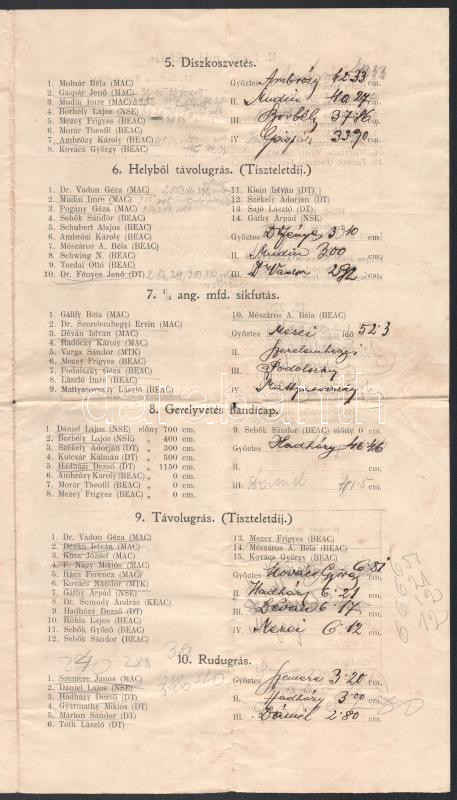 5. Diszkoszvetés.
1. Molnár Béla (MAC)
2. Gáspár Jenő (MAC)
3. Mudin Imre (MAC)
4. Borbély Lajos (NSE)
5. Mezey Frigyes (BEAC)
6. Morár Theofil (BEAC)
7. Ambrózy Károly (BEAC)
8. Kovács György (BEAC)
Győztes Ambrózy 42·33 cm.
II. Mudin 40·27 cm.
III. Borbély cm.
IV. Gáspár 33·90 cm.
6. Helyből távolugrás. (Tiszteletdíj.)
1. Dr. Vadon Géza (MAC)
2. Mudin Imre (MAC)
3. Pogány Géza (MAC)
4. Sebők Sándor (BEAC)
5. Schubert Alajos (BEAC)
6. Ambrózi Károly (BEAC)
7. Mészáros A. Béla (BEAC)
8. Schwing N. (BEAC)
9. Tordai Ottó (BEAC)
10. Dr. Fényes Jenő (DT)
11. Klein István (DT)
12. Székely Adorján (DT)
13. Sajó László (DT)
14. Gáthy Árpád (NSE)
Győztes Dr Fényes 3·10 cm.
II. Mudin 3.00 cm.
III. Dr Vadon 292 cm.
7. ¼ ang. mfd. sikfutás.
1. Gállfy Béla (MAC)
2. Dr. Szerelemhegyi Ervin (MAC)
3. Déván István (MAC)
4. Radóczy Károly (MAC)
5. Varga Sándor (MTK)
6. Mezey Frigyes (BEAC)
7. Podolszky Géza (BEAC)
8. László Imre (BEAC)
9. Mattyasovszky László (BEAC)
10. Mészáros A. Béla (BEAC)
Győztes Mezei idő 52·3
II. Szerelemhegyi
III. Podolszky
IV. Mattyasovszky
8. Gerelyvetés handicap.
1. Dániel Lajos (NSE) előny 700 cm.
2. Borbély Lajos (NSE) „ 400 cm.
3. Székely Adorján (DT) „ 300 cm.
4. Kulcsár Kálmán (DT) „ 500 cm.
5. Hadházi Dezső (DT) „ 1150 cm.
6. Ambrózy Károly (BEAC) „ 0 cm.
7. Morar Theofil (BEAC) „ 0 cm.
8. Mezey Frigyes (BEAC) „ 0 cm.
9. Sebők Sándor (BEAC) előny 0 cm.
Győztes Hadházy 46·46 cm.
II. cm.
III. cm.
9. Távolugrás. (Tiszteletdíj.)
1. Dr. Vadon Géza (MAC)
2. Deván István (MAC)
3. Kósa József (MAC)
4. F. Nagy Miklós (MAC)
5. Rácz Ferencz (MAC)
6. Kovács Nándor (MTK)
7. Gáthy Árpád (NSE)
8. Dr. Somody András (KEAC)
9. Hadházy Dezső (DT)
10. Róhla Lajos (BEAC)
11. Sebők Győző (BEAC)
12. Sebők Sándor (BEAC)
13. Mezey Frigyes (BEAC)
14. Mészáros A. Béla (BEAC)
15. Kovács György (BEAC)
Győztes Kovács György cm.
II. Hadházy 6·21 cm.
III. Deván 6·17 cm.
IV. Mezei 6·12 cm.
10. Rudugrás.
1. Szemere János (MAC)
2. Dániel Lajos (NSE)
3. Hadházy Dezső (DT)
4. Gyarmathy Miklós (DT)
5. Márton Sándor (DT)
6. Tóth László (DT)
Győztes Szemere 3·20 cm.
II. Hadházy 3·00 cm.
III. Dániel 2·80 cm.